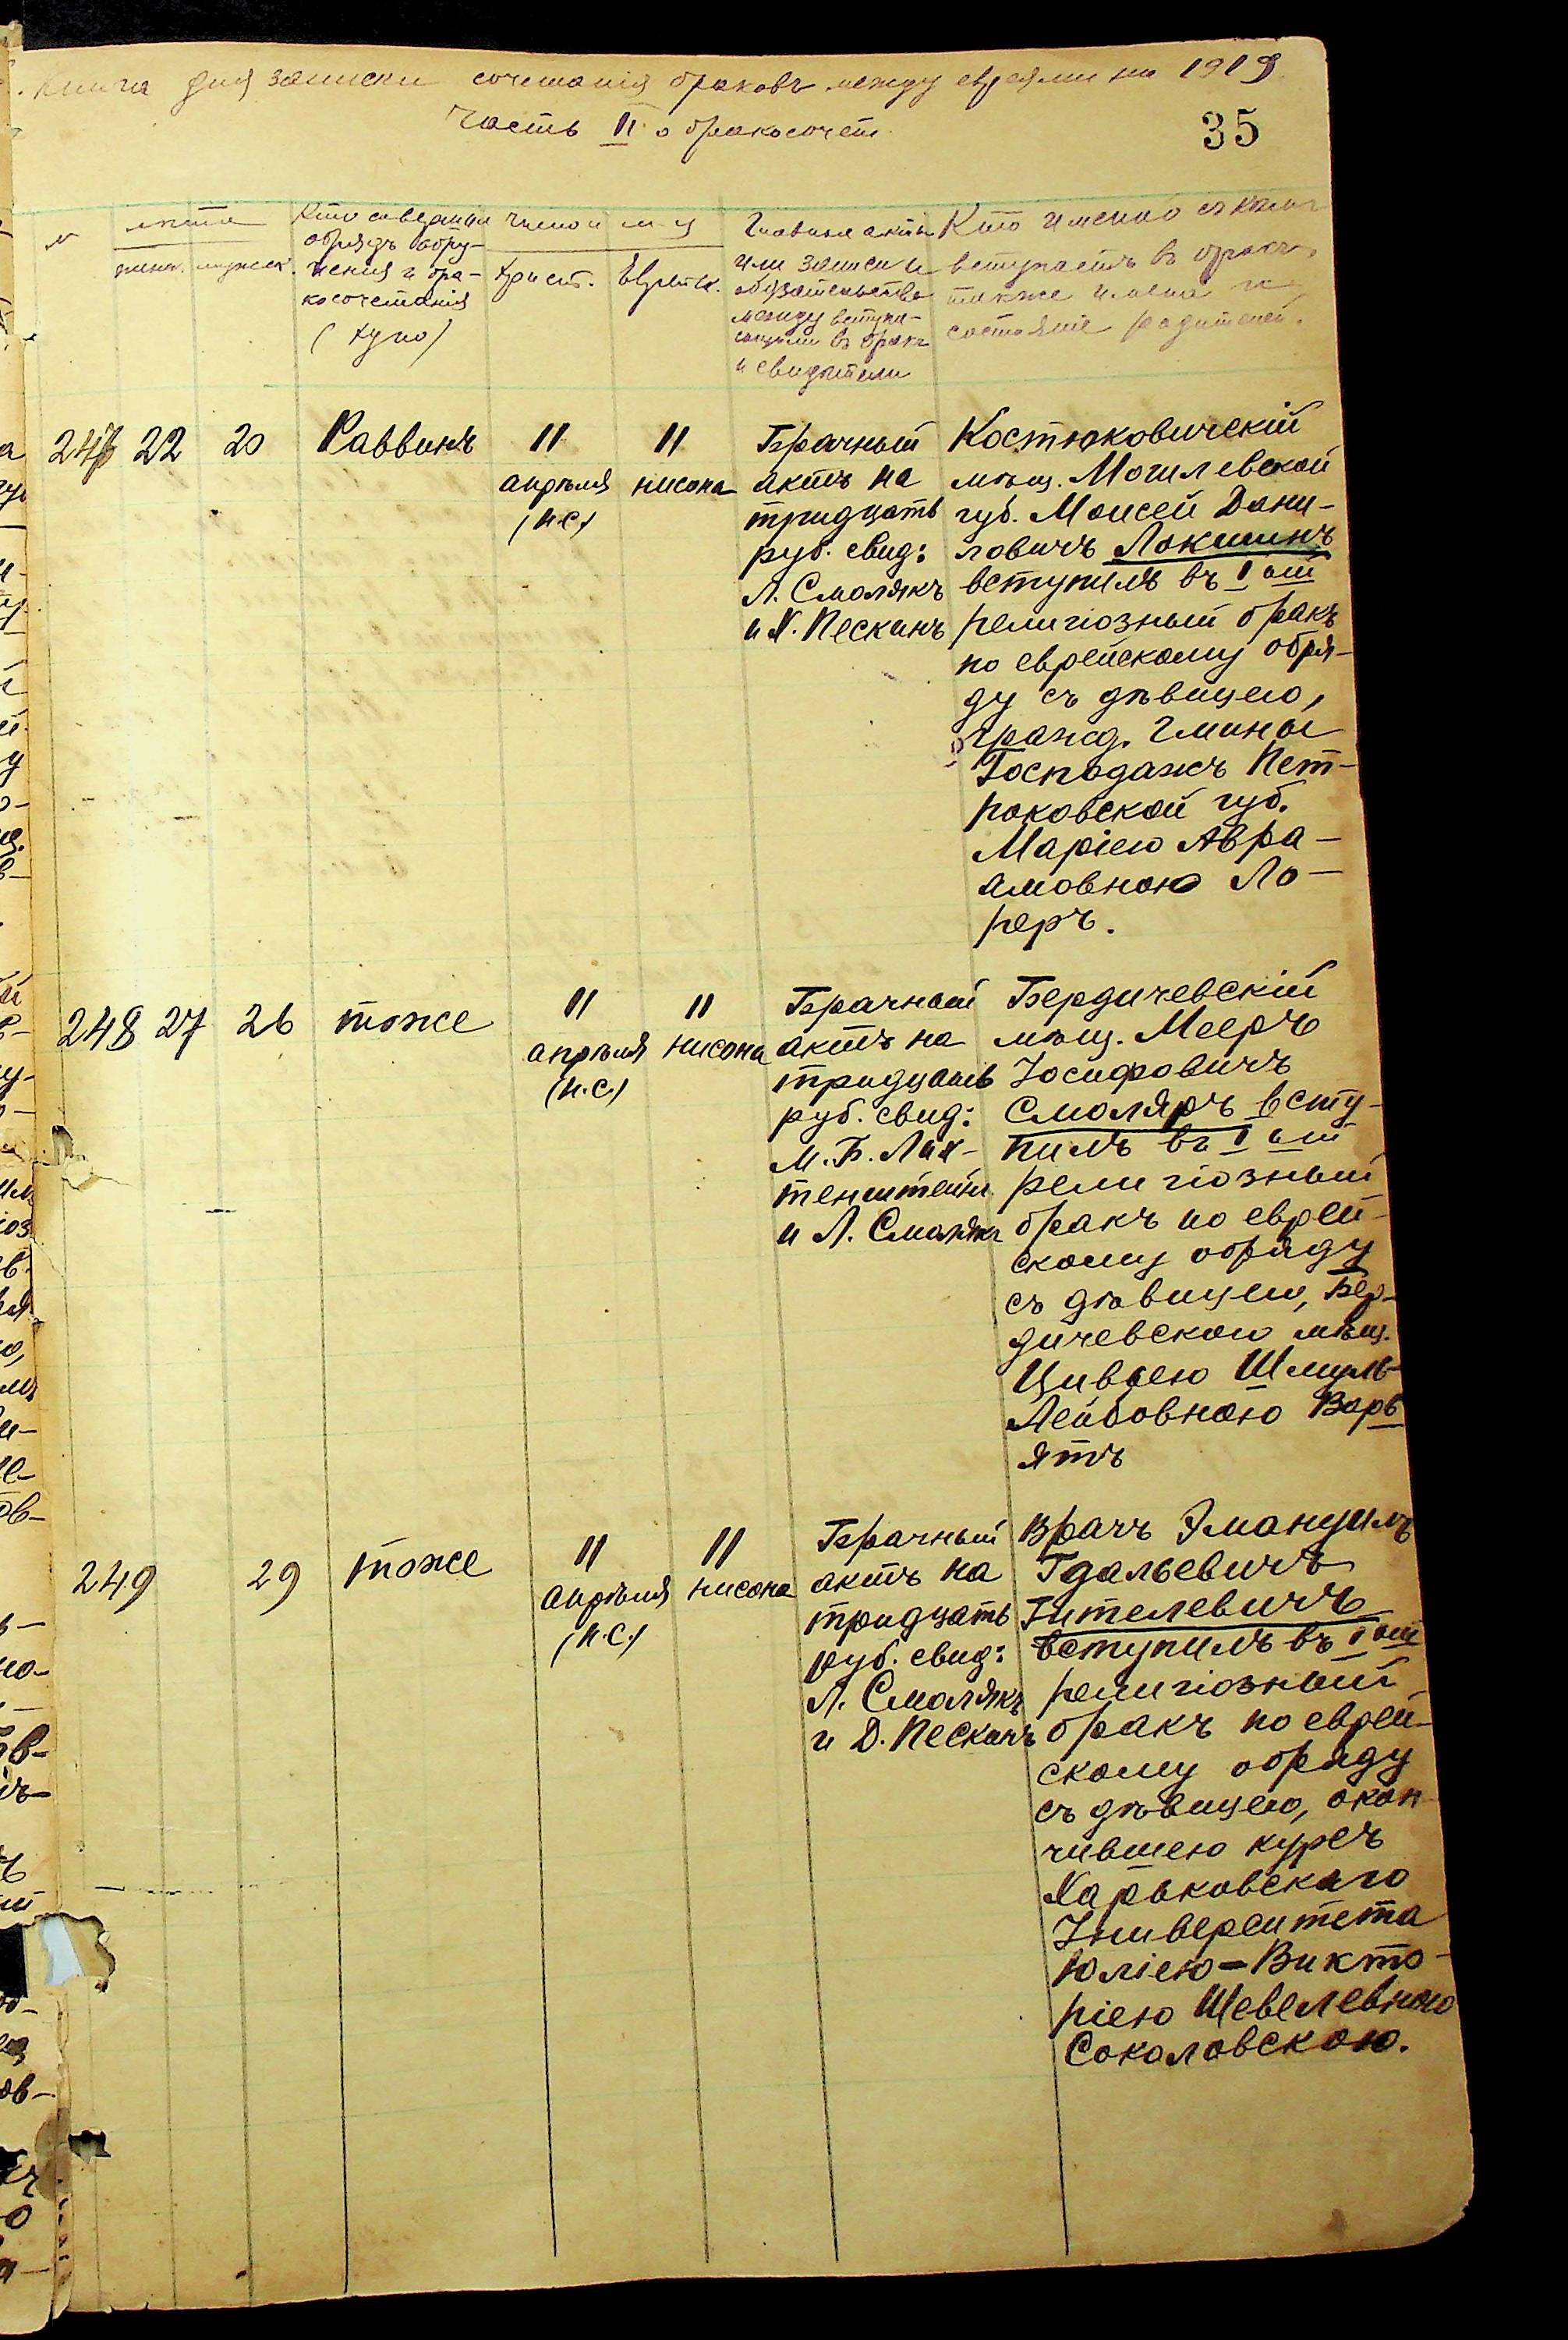 Книга для записки сочетанія браковъ между евреями на 1919
Часть II о бракосочет.
35
№
лета
женск. мужеск.
Кто совершал
обрядъ обру-
ченія и бра-
косочетанія
(хупо)
Число и м-ц
Христ.
Еврейск.
Главные акты
или записи и
обязательства
между вступа-
ющими въ бракъ
и свидѣтели
Кто именно съ кѣмъ
вступаетъ въ бракъ,
также имена и
состояніе родителей.
247
22
20
Раввинъ
11
апрѣля
(н.с.)
11
нисона
Брачный
актъ на
тридцать
руб. свид:
Л. Смолякъ
и Х. Пескинъ
Костюковичскій
мѣщ. Могилевской
губ. Моисей Дани-
ловичъ Локшинъ
вступилъ въ I ый
религіозный бракъ
по еврейскому обря-
ду съ дѣвицею,
гражд. гмины
Господажъ Пет-
роковской губ.
Маріею Авра-
амовною Ло-
реръ.
248
27
26
тоже
11
апрѣля
(н.с.)
11
нисона
Брачный
актъ на
тридцать
руб. свид:
М. Б. Лих-
тенштейн
и Л. Смолякъ
Бердичевскій
мѣщ. Мееръ
Іосифовичъ
Смоляръ всту-
пилъ въ I ый
религіозный
бракъ по еврей-
скому обряду
съ дѣвицею, Бер-
дичевскою мѣщ.
Цивьею Шмуль-
Лейбовною Варь
ятъ
249
29
тоже
11
апрѣля
(н.с.)
11
нисона
Брачный
актъ на
тридцать
руб. свид:
Л. Смолякъ
и Д. Пескинъ
Врачъ Эмануилъ
Гдальевичъ
Гителевичъ
вступилъ въ I ый
религіозный
бракъ по еврей-
скому обряду
съ дѣвицею, окон-
чившею курсъ
Харьковскаго
Университета
Юліею-Викто-
ріею Шевелевною
Соколовскою.